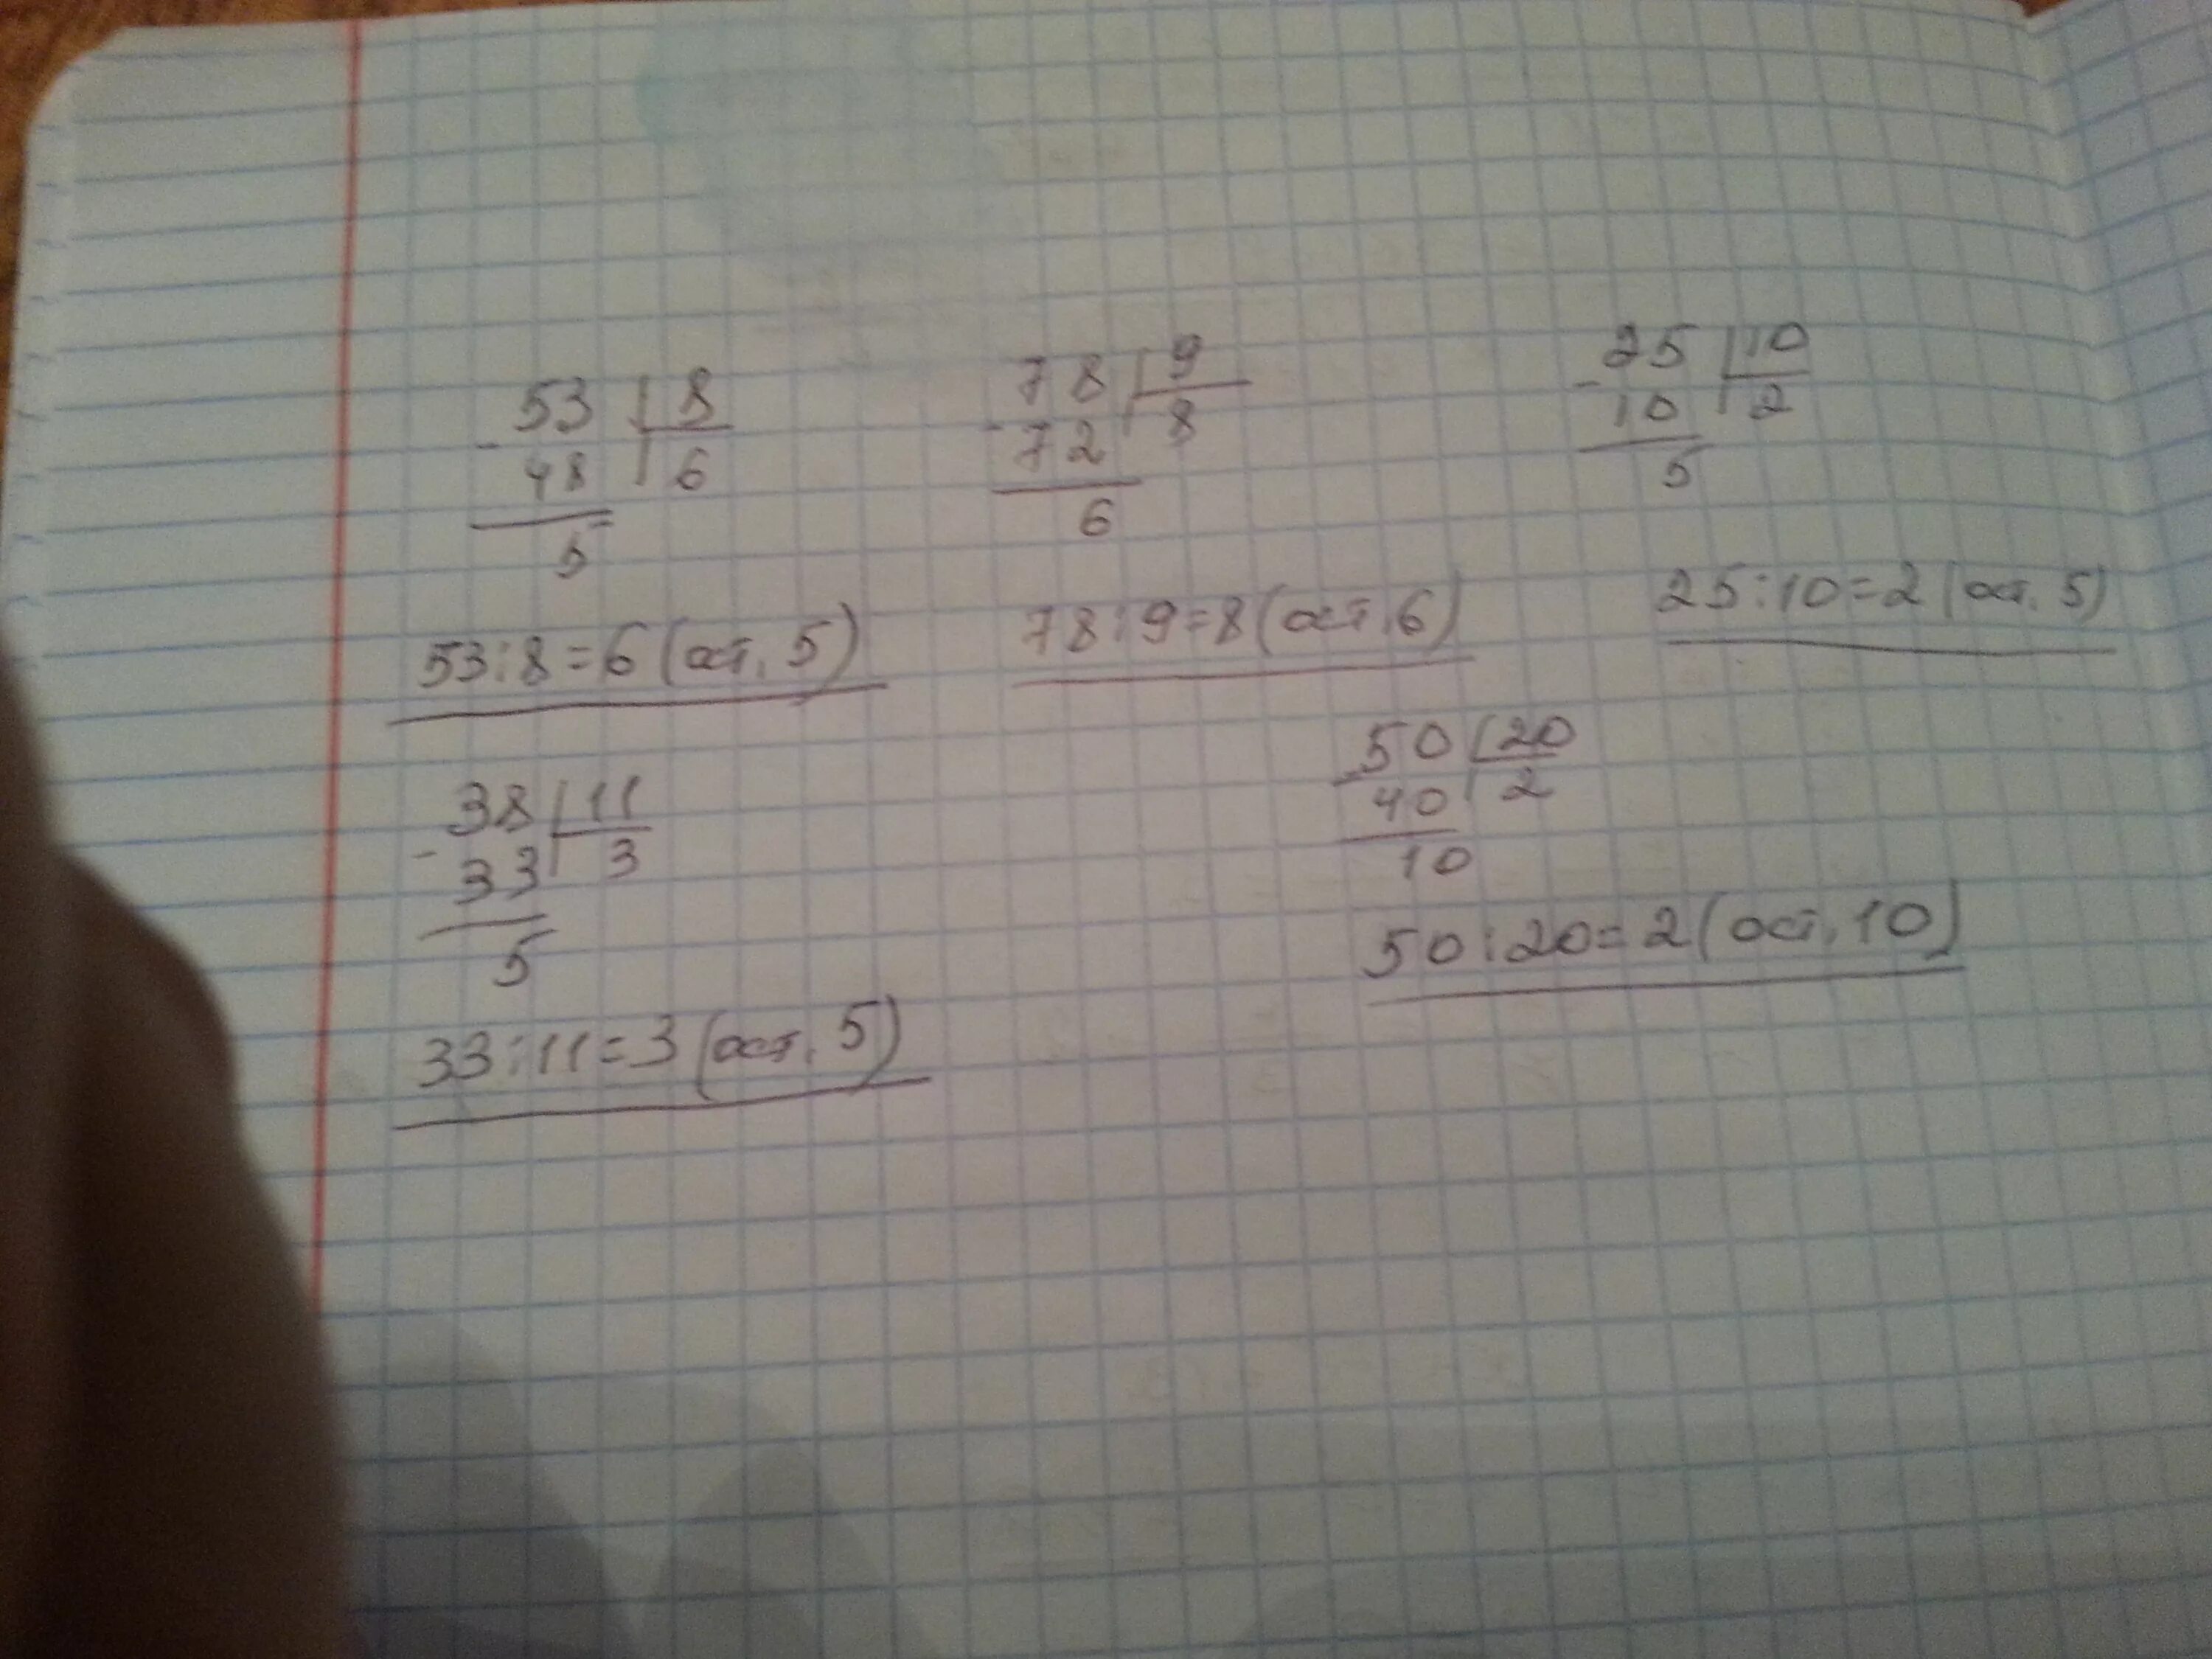 53 | 8
- 48 | 6
5
53:8=6 (ост. 5)
78 | 9
- 72 | 8
6
78:9=8 (ост. 6)
25 | 10
- 10 | 2
5
25:10=2 (ост. 5)
38 | 11
- 33 | 3
5
33:11=3 (ост. 5)
50 | 20
- 40 | 2
10
50:20=2 (ост. 10)